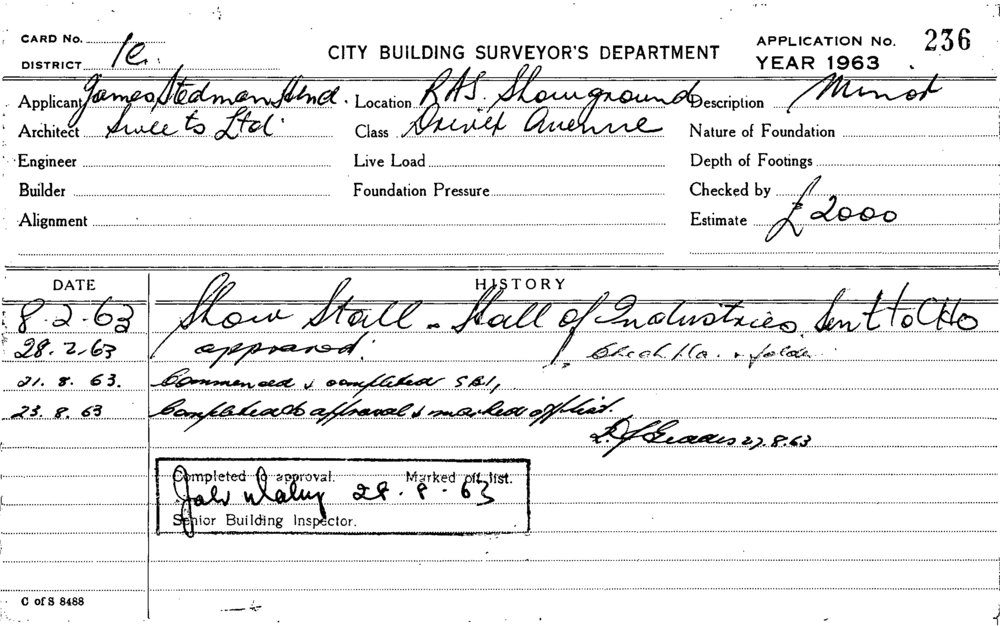 CARD No.
DISTRICT 1c.
CITY BUILDING SURVEYOR'S DEPARTMENT
APPLICATION No. 236
YEAR 1963
Applicant James Stedman Hend. Location RAS. Showground Description Minor
Architect Sweets Ltd. Class Driver Avenue Nature of Foundation
Engineer Live Load Depth of Footings
Builder Foundation Pressure Checked by
Alignment Estimate £2000
DATE HISTORY
8.2.63 Show Stall - Hall of Industries. Sent to CHO
28.2.63 approved.
21.8.63. Commenced & completed
23.8.63 Completed to approval & marked off list.
27.8.63
Completed to approval. Marked off list.
28.8.63
Senior Building Inspector.
C of S 8488